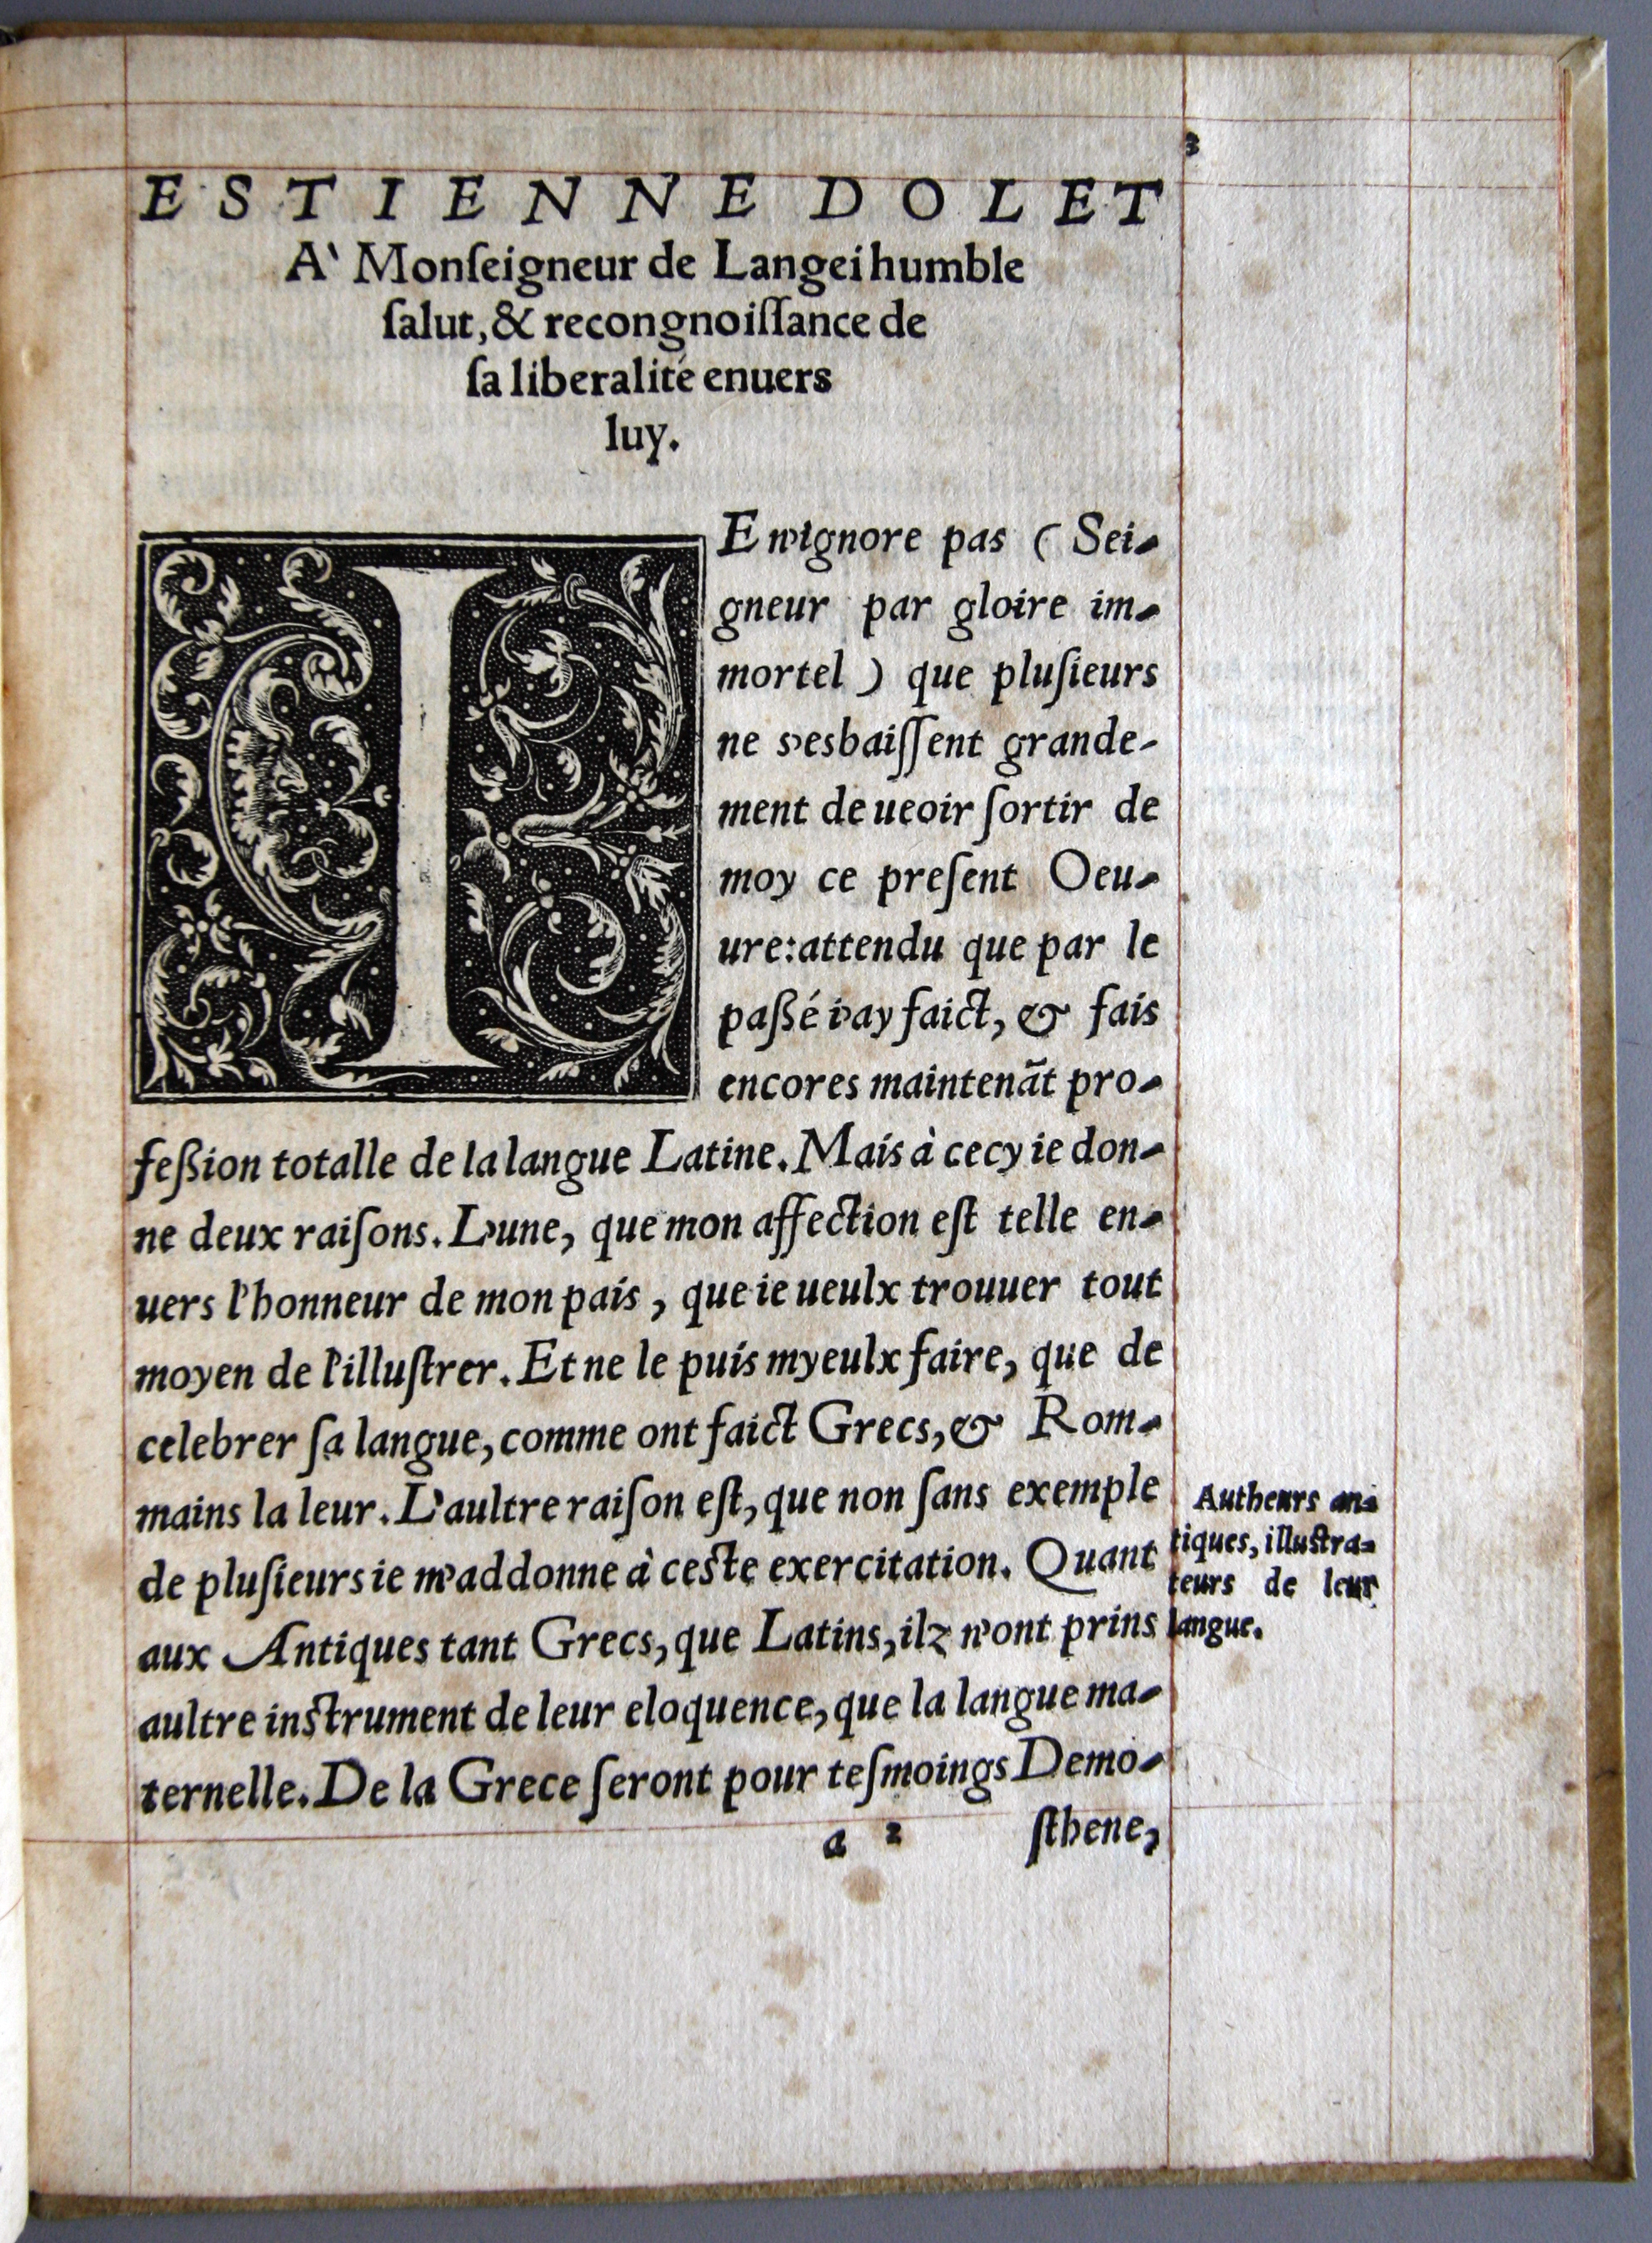 3
ESTIENNE DOLET
A` Monſeigneur de Langei humble
ſalut, & recongnoiſſance de
ſa liberalité enuers
luy.
IE n'ignore pas ( Sei-
gneur par gloire im-
mortel ) que pluſieurs
ne s'esbaiſſent grande-
ment de ueoir ſortir de
moy ce preſent Oeu-
ure: attendu que par le
paßé i'ay faict, & fais
encores maintenāt pro-
feßion totalle de la langue Latine. Mais à cecy ie don-
ne deux raiſons. L'une, que mon affection eſt telle en-
uers l'honneur de mon païs, que ie ueulx trouuer tout
moyen de l'illuſtrer. Et ne le puis myeulx faire, que de
celebrer ſa langue, comme ont faict Grecs, & Rom-
mains la leur. L'aultre raiſon eſt, que non ſans exemple
de pluſieurs ie m'addonne à ceſte exercitation. Quant
aux Antiques tant Grecs, que Latins, ilz n'ont prins
aultre inſtrument de leur eloquence, que la langue ma-
ternelle. De la Grece ſeront pour teſmoings Demo-
a 2 ſthene,
Autheurs an-
tiques, illuſtra-
teurs de leur
langue.